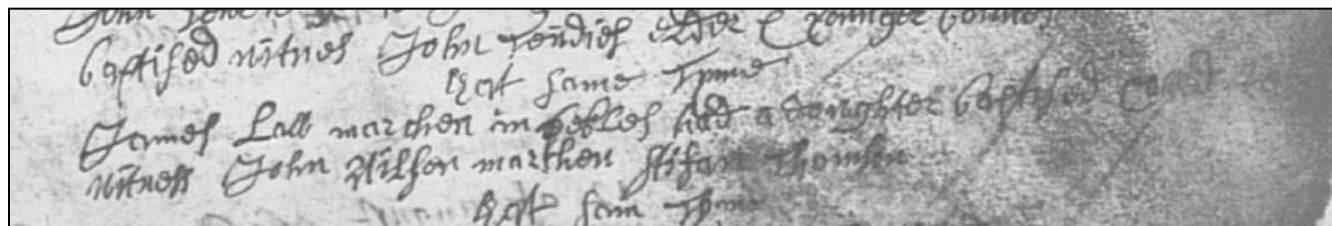 John
baptised witnes John Tendies elder & younger
that same tyme
James Law marchen in peebles had a doughter baptised called
witness John Wilson marchen Thomson
that sam tyme